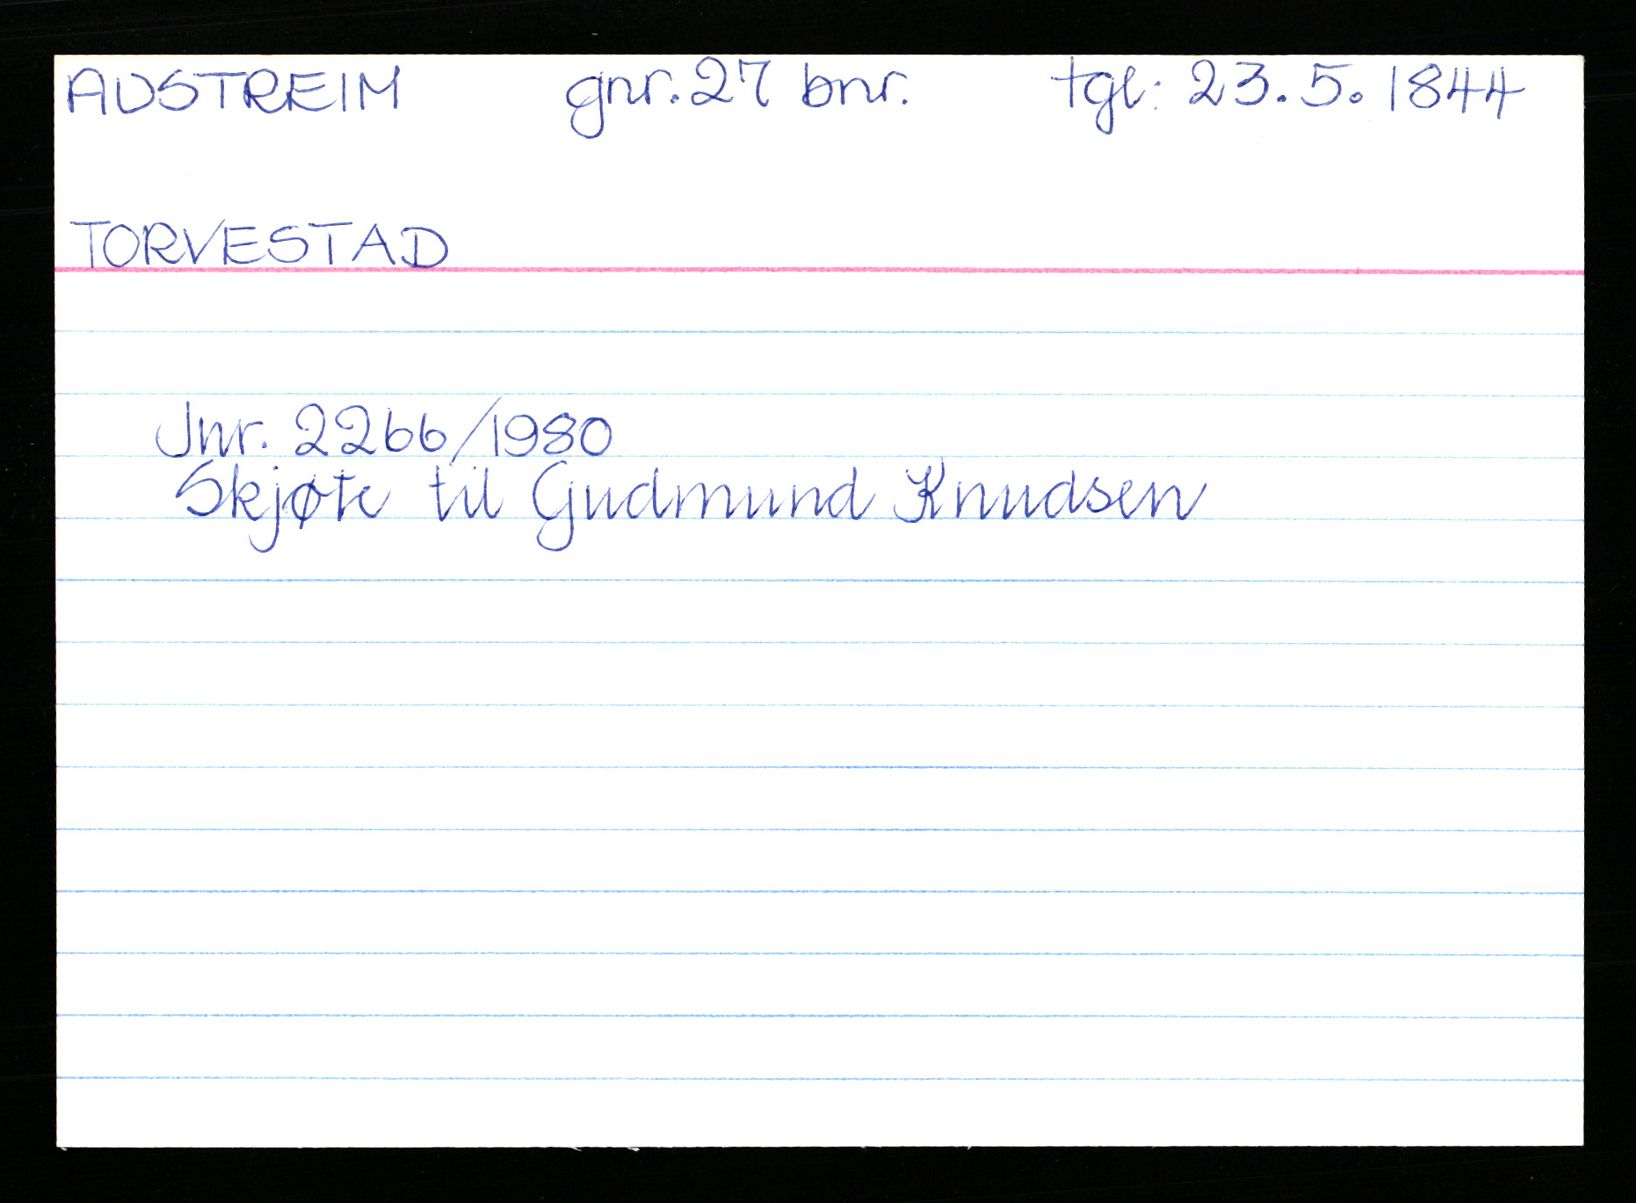 AUSTREIM gnr. 27 bnr. tgl: 23.5.1844
TORVESTAD
Jnr. 2266/1980
Skjøte til Gudmund Knudsen